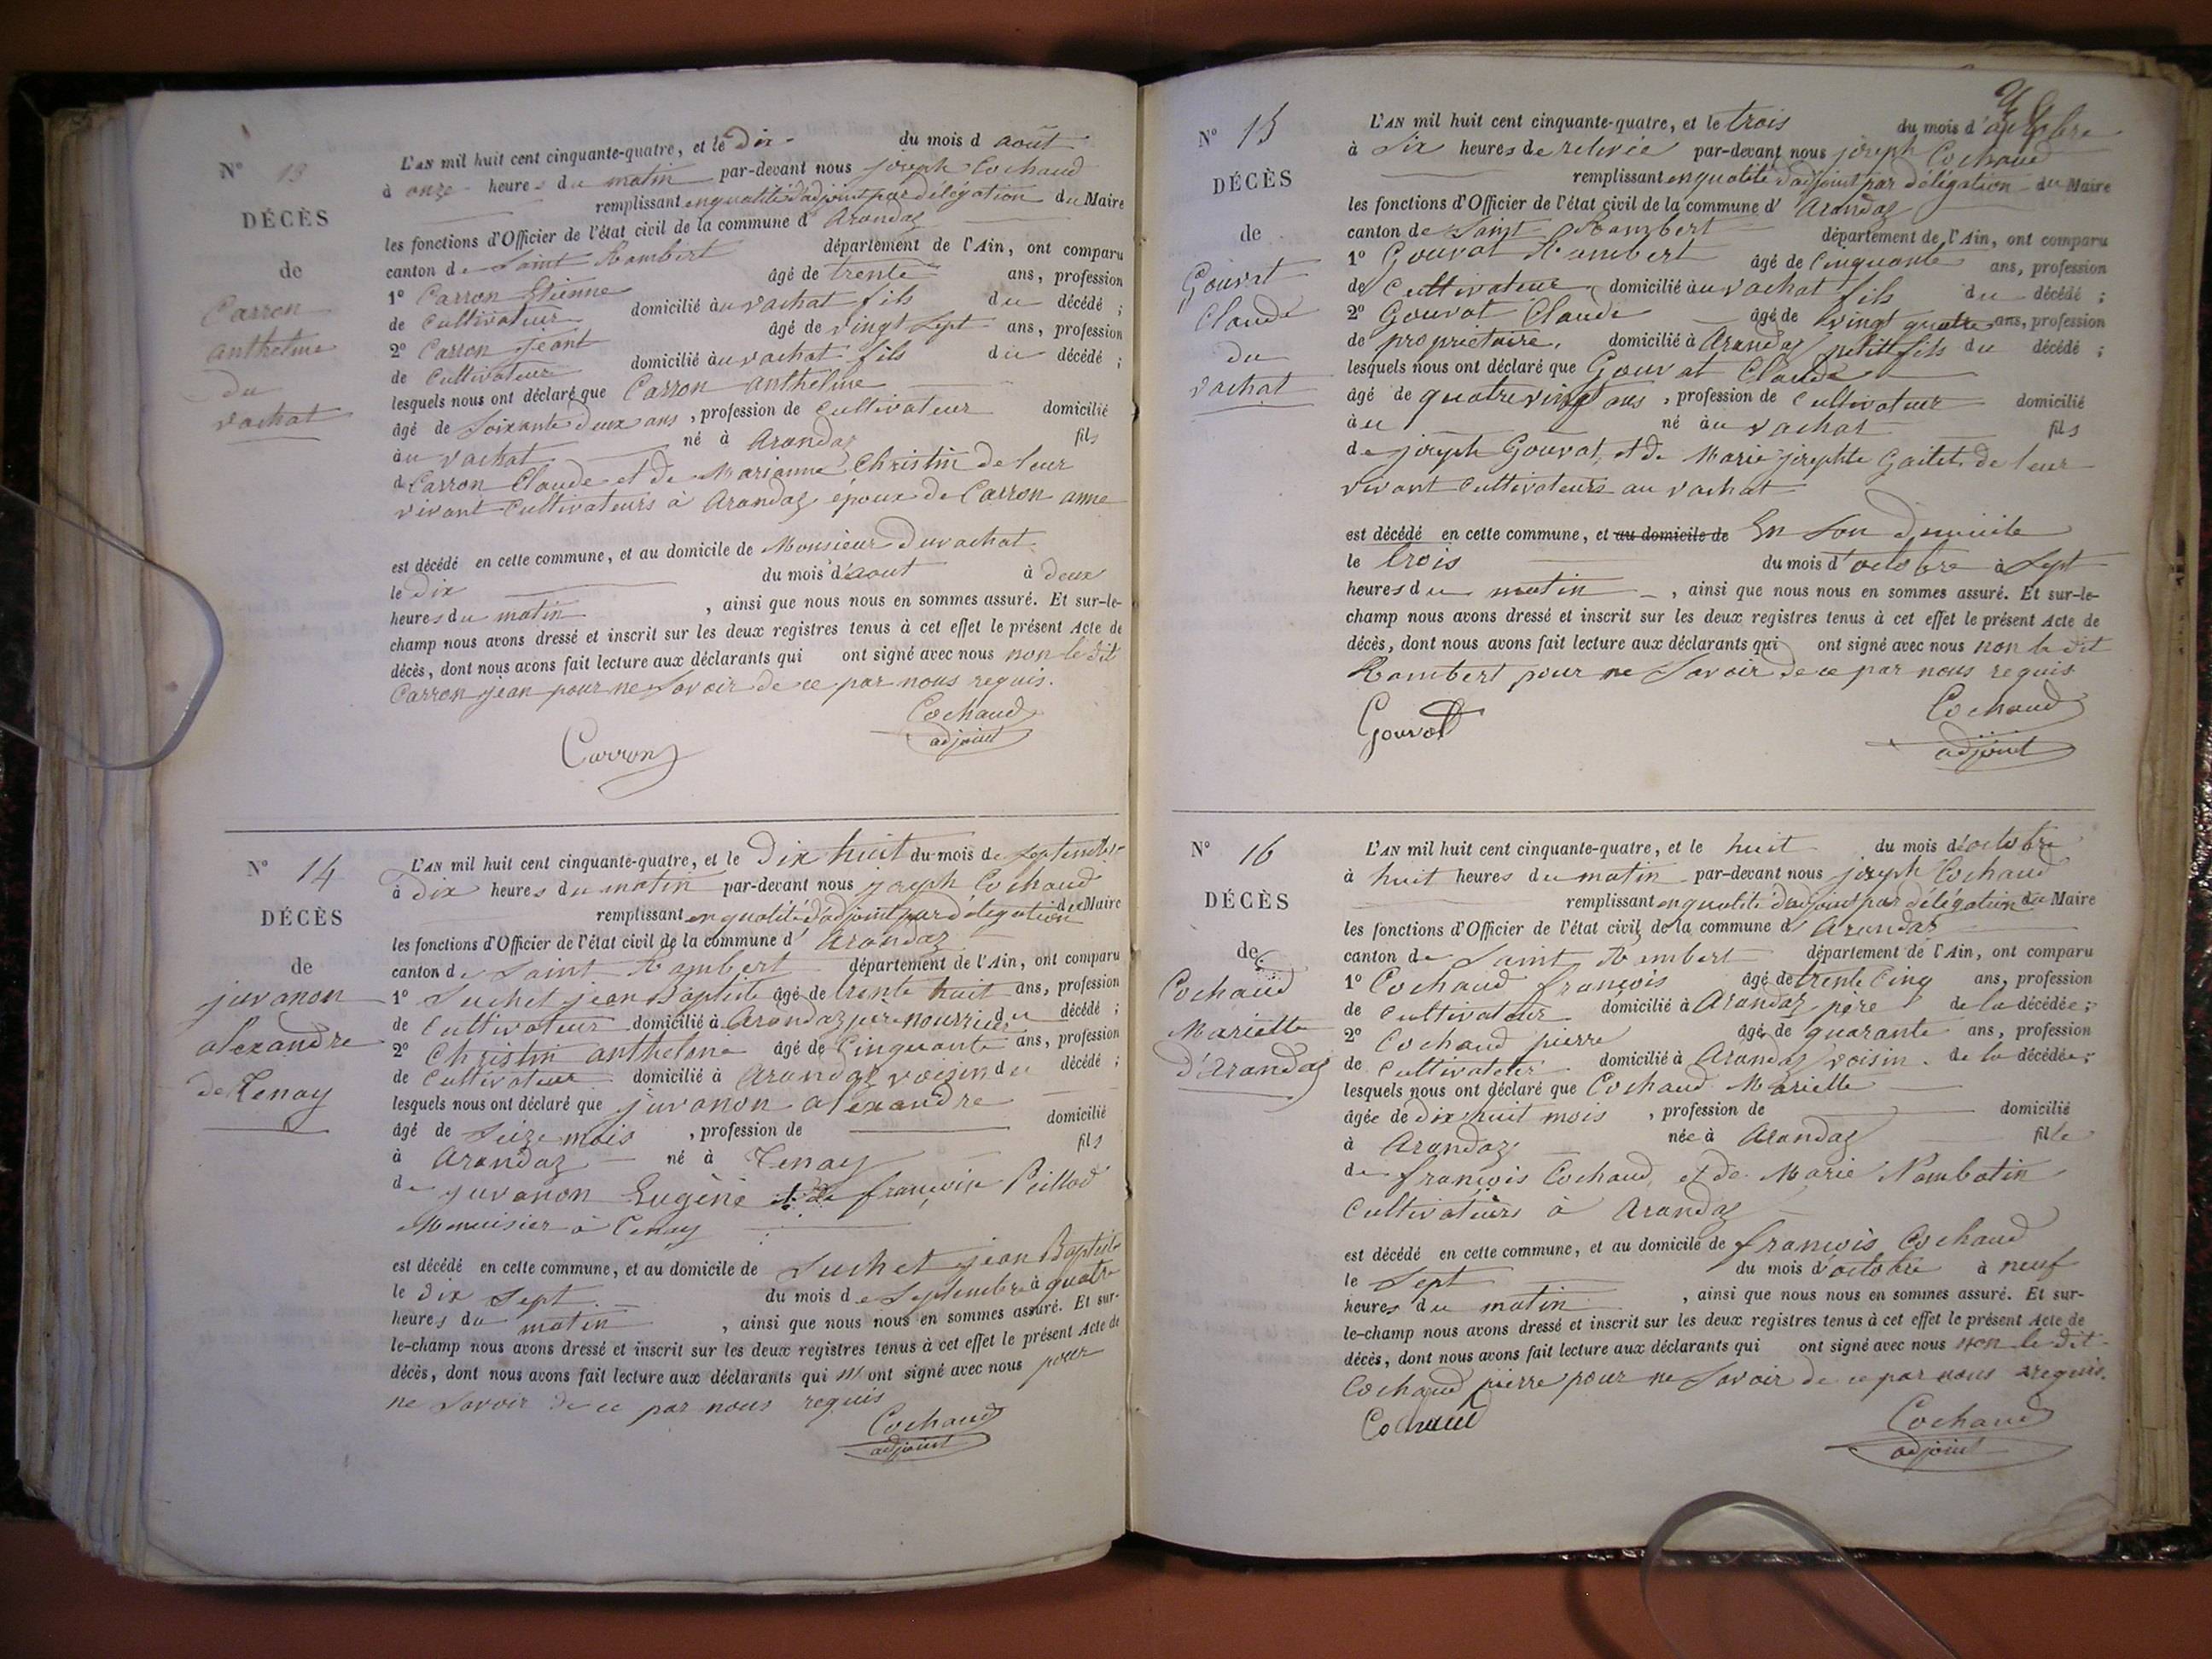 N° 13
DÉCÈS
de
Carron
anthelme
du
vachat
L'AN mil huit cent cinquante-quatre, et le Dix du mois d août
à onze heures du matin par-devant nous joseph Cochaud
remplissant en qualité d'adjoint par délégation du Maire
les fonctions d'Officier de l'état civil de la commune d' Arandaz
canton de Saint Rambert département de l'Ain, ont comparu
1° Carron Etienne âgé de trente ans, profession
de Cultivateur domicilié au vachat fils du décédé ;
2° Carron jeant âgé de vingt Sept ans, profession
de Cultivateur domicilié au vachat fils du décédé ;
lesquels nous ont déclaré que Carron anthelme
âgé de Soixante deux ans, profession de Cultivateur domicilié
au vachat né à Arandaz fils
de Carron Claude et de Marianne Christin de leur
vivant Cultivateurs à Arandaz époux de Carron anne
est décédé en cette commune, et au domicile de Monsieur Duvachat
le dix du mois d'aout à deux
heures du matin, ainsi que nous nous en sommes assuré. Et sur-le-
champ nous avons dressé et inscrit sur les deux registres tenus à cet effet le présent Acte de
décès, dont nous avons fait lecture aux déclarants qui ont signé avec nous non le dit
Carron jean pour ne Savoir de ce par nous requis.
Cochaud
adjoint
Carron
N° 14
DÉCÈS
de
juvanon
alexandre
de Tenay
L'AN mil huit cent cinquante-quatre, et le Dix huit du mois de Septembre
à Dix heures du matin par-devant nous joseph Cochaud
remplissant en qualité d'adjoint par délégation du Maire
les fonctions d'Officier de l'état civil de la commune d' Arandaz
canton de Saint Rambert département de l'Ain, ont comparu
1° Suchet jean Baptiste âgé de trente huit ans, profession
de Cultivateur domicilié à Arandaz père nourricier du décédé ;
2° Christin anthelme âgé de Cinquante ans, profession
de Cultivateur domicilié à Arandaz voisin du décédé ;
lesquels nous ont déclaré que juvanon alexandre
âgé de Seize mois, profession de domicilié
à Arandaz né à Tenay fils
de juvanon Eugène et de françoise Peillod
Menuisier à Tenay
est décédé en cette commune, et au domicile de Suchet jean Baptiste
le Dix Sept du mois de Septembre à quatre
heures du matin, ainsi que nous nous en sommes assuré. Et sur-
le-champ nous avons dressé et inscrit sur les deux registres tenus à cet effet le présent Acte de
décès, dont nous avons fait lecture aux déclarants qui n'ont signé avec nous pour
ne Savoir de ce par nous requis
Cochaud
adjoint
N° 15
DÉCÈS
de
Gouvat
Claude
du
vachat
L'AN mil huit cent cinquante-quatre, et le trois du mois d'octobre
à Six heures de relevée par-devant nous joseph Cochaud
remplissant en qualité d'adjoint par délégation du Maire
les fonctions d'Officier de l'état civil de la commune d' Arandaz
canton de Saint Rambert département de l'Ain, ont comparu
1° Gouvat Rambert âgé de Cinquante ans, profession
de Cultivateur domicilié au vachat fils du décédé ;
2° Gouvat Claude âgé de vingt quatre ans, profession
de propriétaire, domicilié à Arandaz petit fils du décédé ;
lesquels nous ont déclaré que Gouvat Claude
âgé de quatre vingt ans, profession de Cultivateur domicilié
au né au vachat fils
de joseph Gouvat, et de Marie josephte Gaitet de leur
vivant Cultivateurs au vachat
est décédé en cette commune, et au domicile de En Son domicile
le trois du mois d'octobre à Sept
heures du matin, ainsi que nous nous en sommes assuré. Et sur-le-
champ nous avons dressé et inscrit sur les deux registres tenus à cet effet le présent Acte de
décès, dont nous avons fait lecture aux déclarants qui ont signé avec nous non le dit
Rambert pour ne Savoir de ce par nous requis
Gouvat
Cochaud
adjoint
N° 16
DÉCÈS
de
Cochaud
Mariette
d'Arandaz
L'AN mil huit cent cinquante-quatre, et le huit du mois d'octobre
à huit heures du matin par-devant nous joseph Cochaud
remplissant en qualité d'adjoint par délégation du Maire
les fonctions d'Officier de l'état civil de la commune d' Arandaz
canton de Saint Rambert département de l'Ain, ont comparu
1° Cochaud françois âgé de trente Cinq ans, profession
de Cultivateur domicilié à Arandaz père de la décédée ;
2° Cochaud pierre âgé de quarante ans, profession
de Cultivateur domicilié à Arandaz voisin de la décédée ;
lesquels nous ont déclaré que Cochaud Mariette
âgée de dix huit mois, profession de domicilié
à Arandaz née à Arandaz fille
de françois Cochaud, et de Marie Nambotin
Cultivateurs à Arandaz
est décédé en cette commune, et au domicile de françois Cochaud
le Sept du mois d'octobre à neuf
heures du matin, ainsi que nous nous en sommes assuré. Et sur-
le-champ nous avons dressé et inscrit sur les deux registres tenus à cet effet le présent Acte de
décès, dont nous avons fait lecture aux déclarants qui ont signé avec nous non le dit
Cochaud pierre pour ne Savoir de ce par nous requis.
Cochaud
Cochaud
adjoint